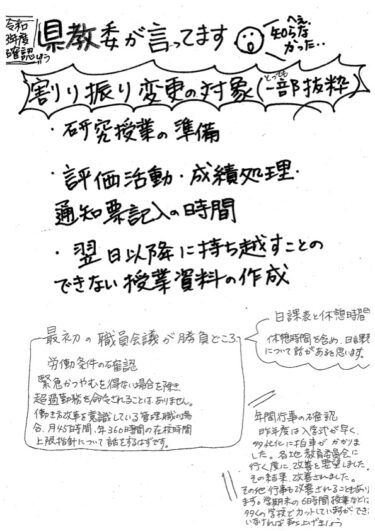 令和
確認
県教委が言ってます
へぇ、
知らな
かった..
割り振り変更の対象(一部抜粋)
・研究授業の準備
・評価活動・成績処理・
通知票記入の時間
・翌日以降に持ち越すことの
できない授業資料の作成
最初の職員会議が勝負どころ
労働条件の確認
緊急かつやむを得ない場合を除き
超過勤務を命ぜられることはありません。
働き方改革を意識している管理職の場
合、月45時間、年360時間の在校時間
上限指針について話をするはずです。
日課表と休憩時間
休憩時間を含め、日課表
について話があると思います。
年間行事の確認
昨年度は入学式が早く、
多忙化に拍車がかかりま
した。各地教育委員会に
行く度に改善を要望しました。
その結果、改善されました。
その他行事も改善されることもあり
ます。学期末の6日時間授業などは
多くの学校でカットしていますが